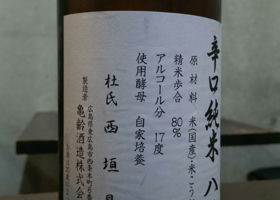 辛口純米八
原材料 米(国産)・米こう
精米歩合 80%
アルコール分 17度
使用酵母 自家培養
杜氏 西垣
製造者 広島県東広島市西条本町
亀齢酒造株式会